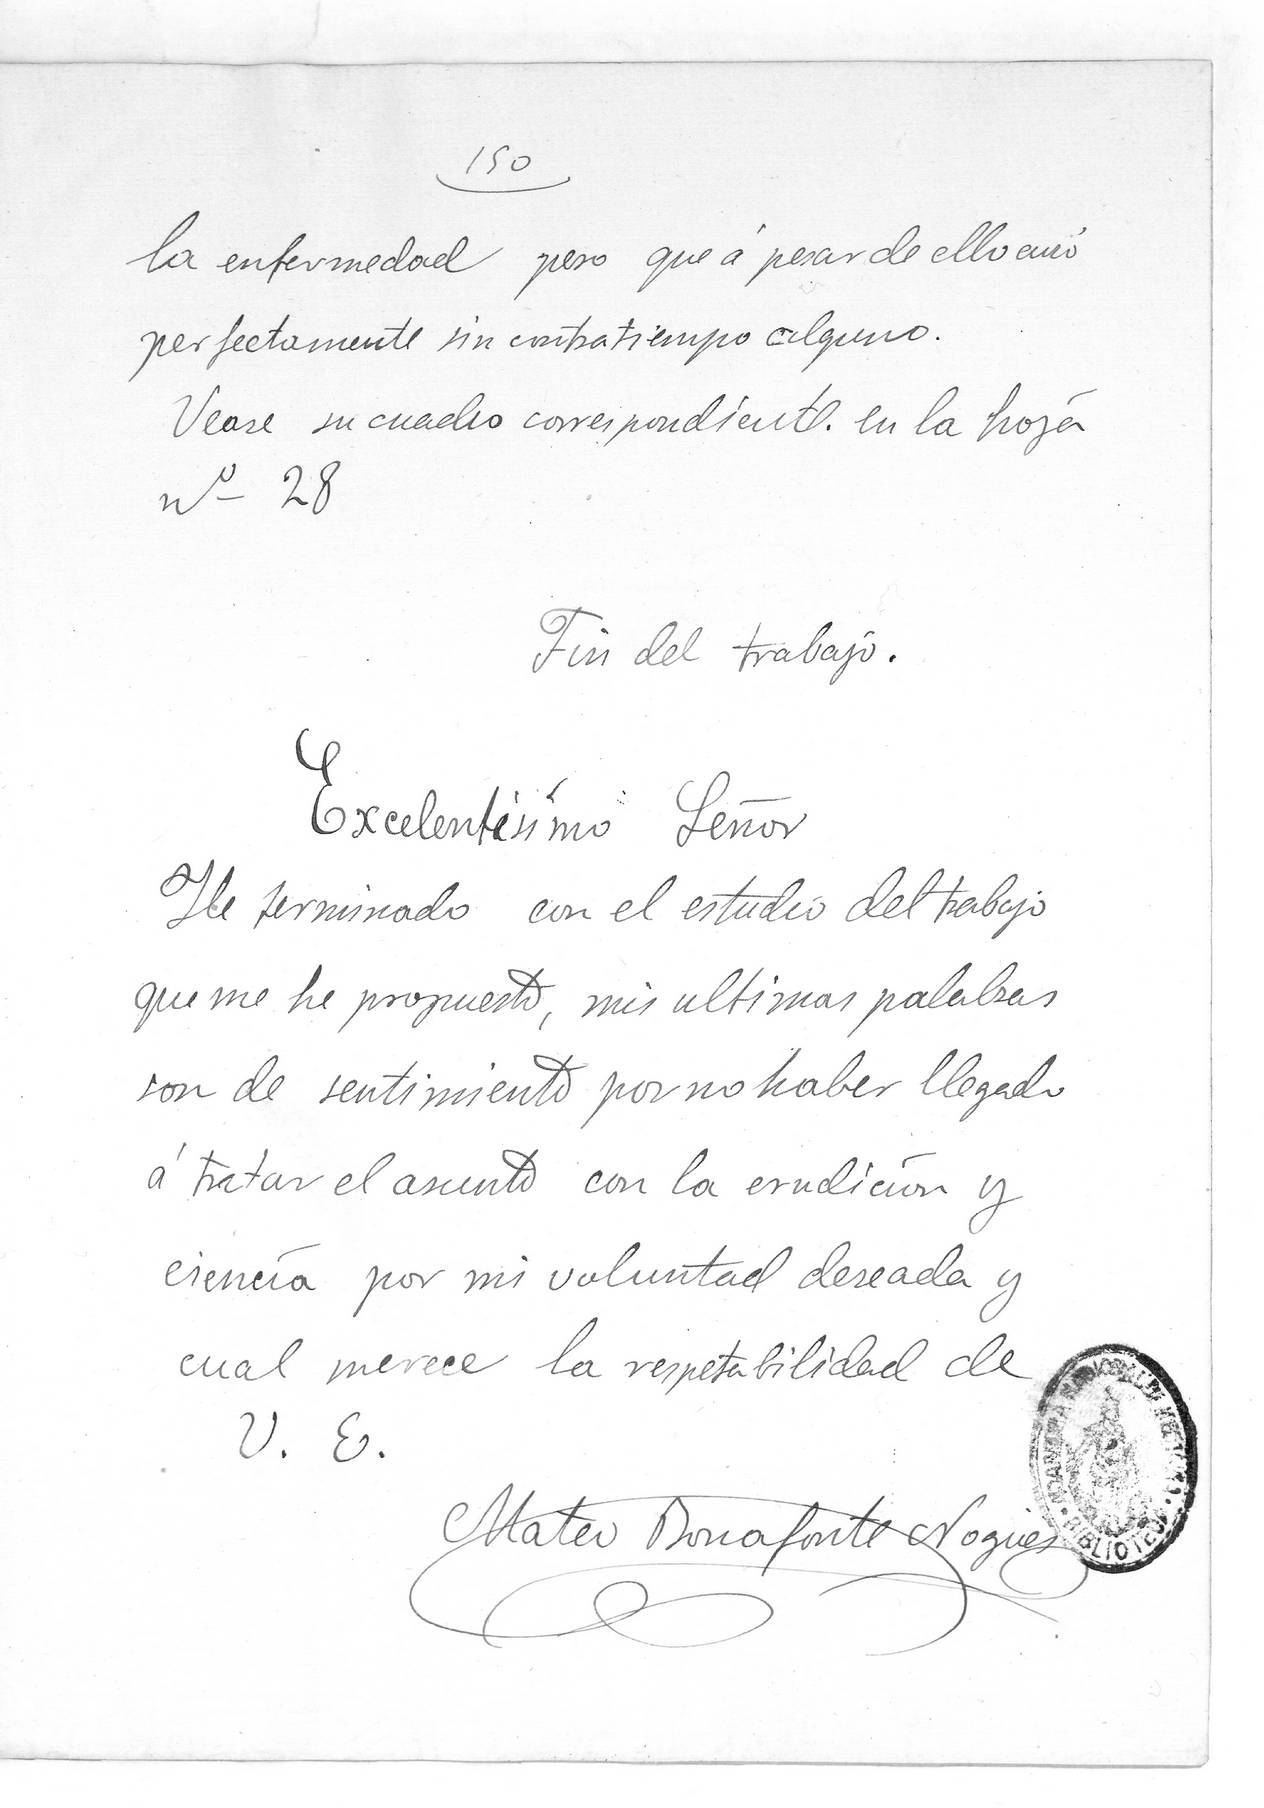 150
la enfermedad pero que á pesar de ello curó
perfectamente sin contratiempo alguno.
Vease su cuadro correspondiente. en la hoja
nº 28
Fin del trabajo.
Excelentísimo Señor
He terminado con el estudio del trabajo
que me he propuesto, mis ultimas palabras
son de sentimiento por no haber llegado
á tratar el asunto con la erudición y
ciencia por mi voluntad deseada y
cual merece la respetabilidad de
V. E.
Mateo Bonafonte Nogues
BIBLIOTECA